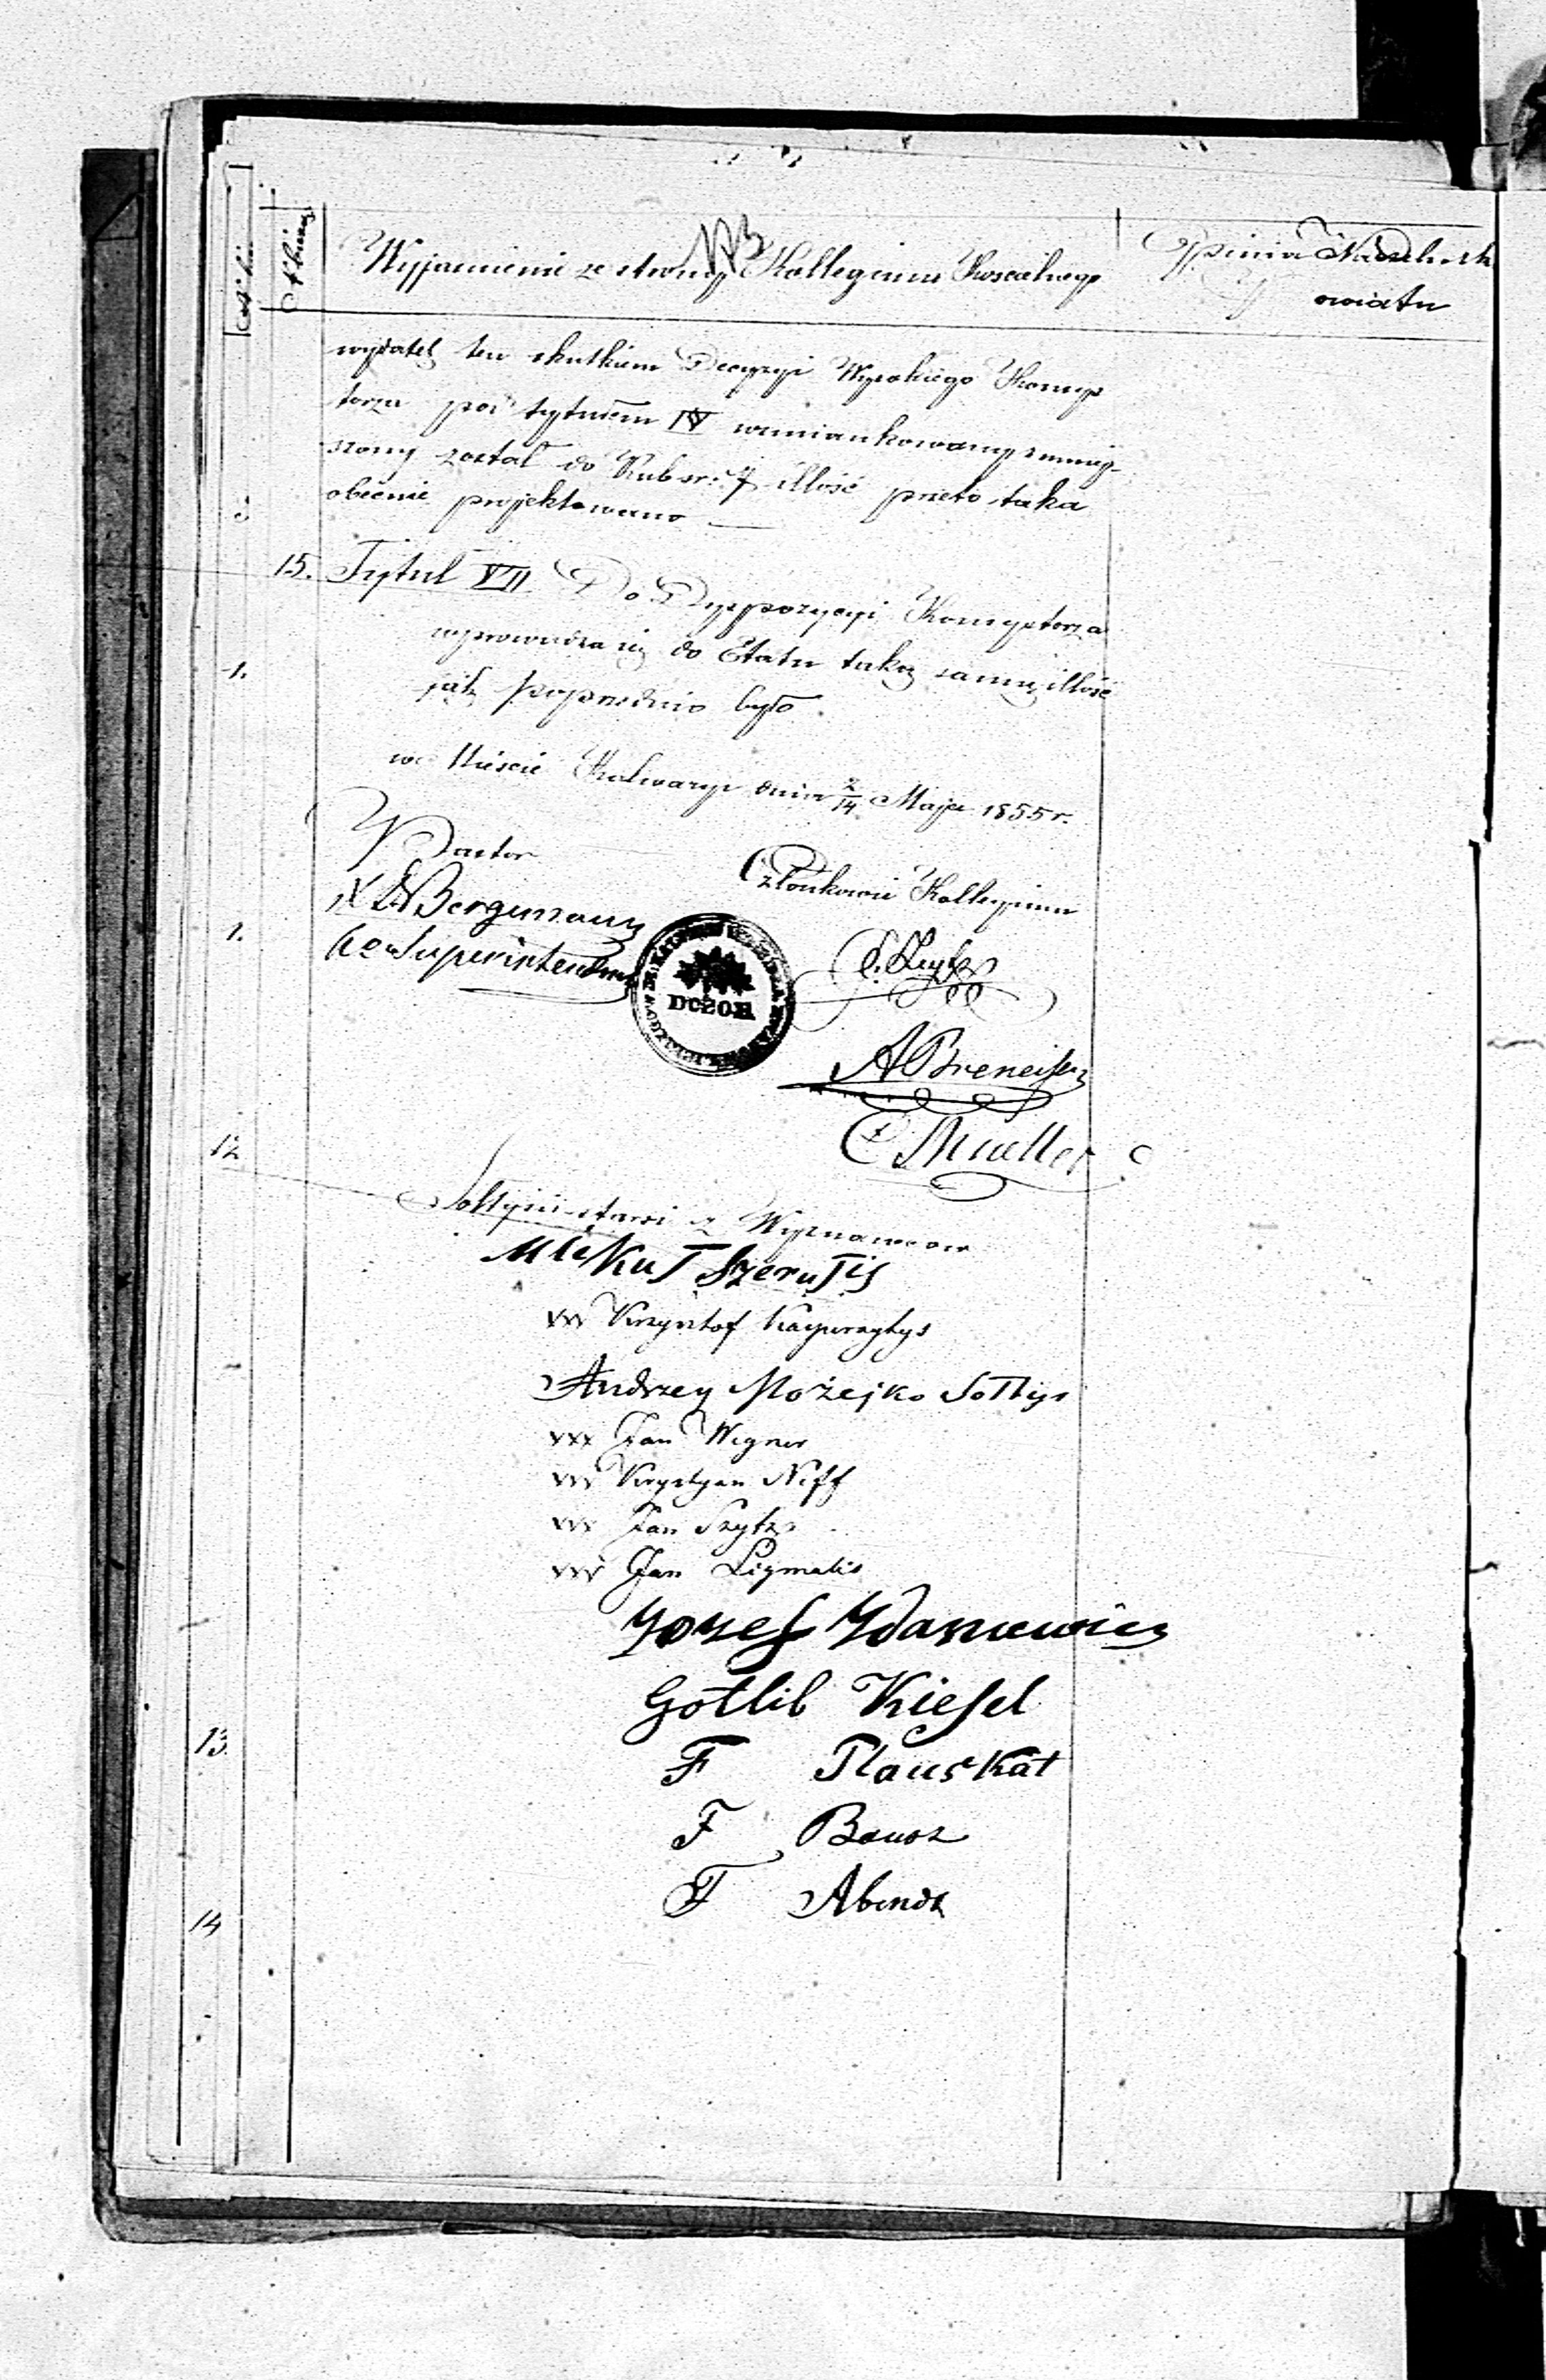 Wyjasnienie ze strony Kollegium Koscielnego
Opinia Naczelnika
owiatu
wydatek ten skutkiem Decyzyi Wysokiego Konsys
torza pod tytułem IV wamiankowany zmniej-
szony został do Rubsr: 7 illość przeto taka
obecnie projektowano —
15. Tytuł VII Do Dyspozycyi Konsystorza
wprowadza się do Etatu taką samą illość
jak poprzednio było.
w Mieście Kalwaryi dnia 2/14 Maja 1855 r.
Pastor
Bergemann
Superintendent
Członkowie Kollegium
DOZOR
A Breneisen
Mueller
Sołtysi starsi z Wyznawcow
Szerutis
xxx Krzysztof
Andrzey Możejko Sołtys
xxx Jan Wegner
xxx Krystyan Neff
xxx Jan Szytz
xxx Jan Ligmatis
Jozef
Gotlib Kiesel
F Plauskat
F
F Abendt
1.
1.
12
13.
14